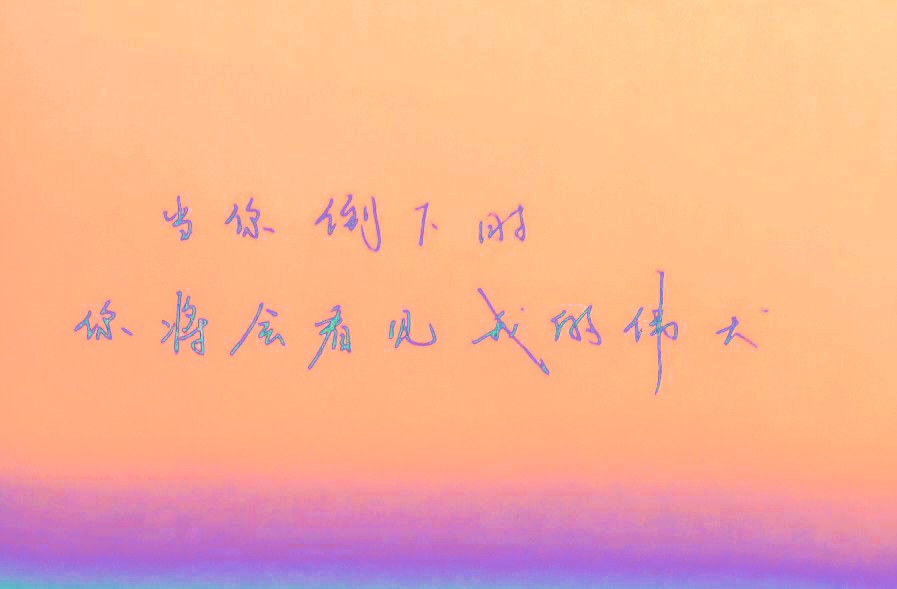 当你倒下时
你将会看见我的伟大